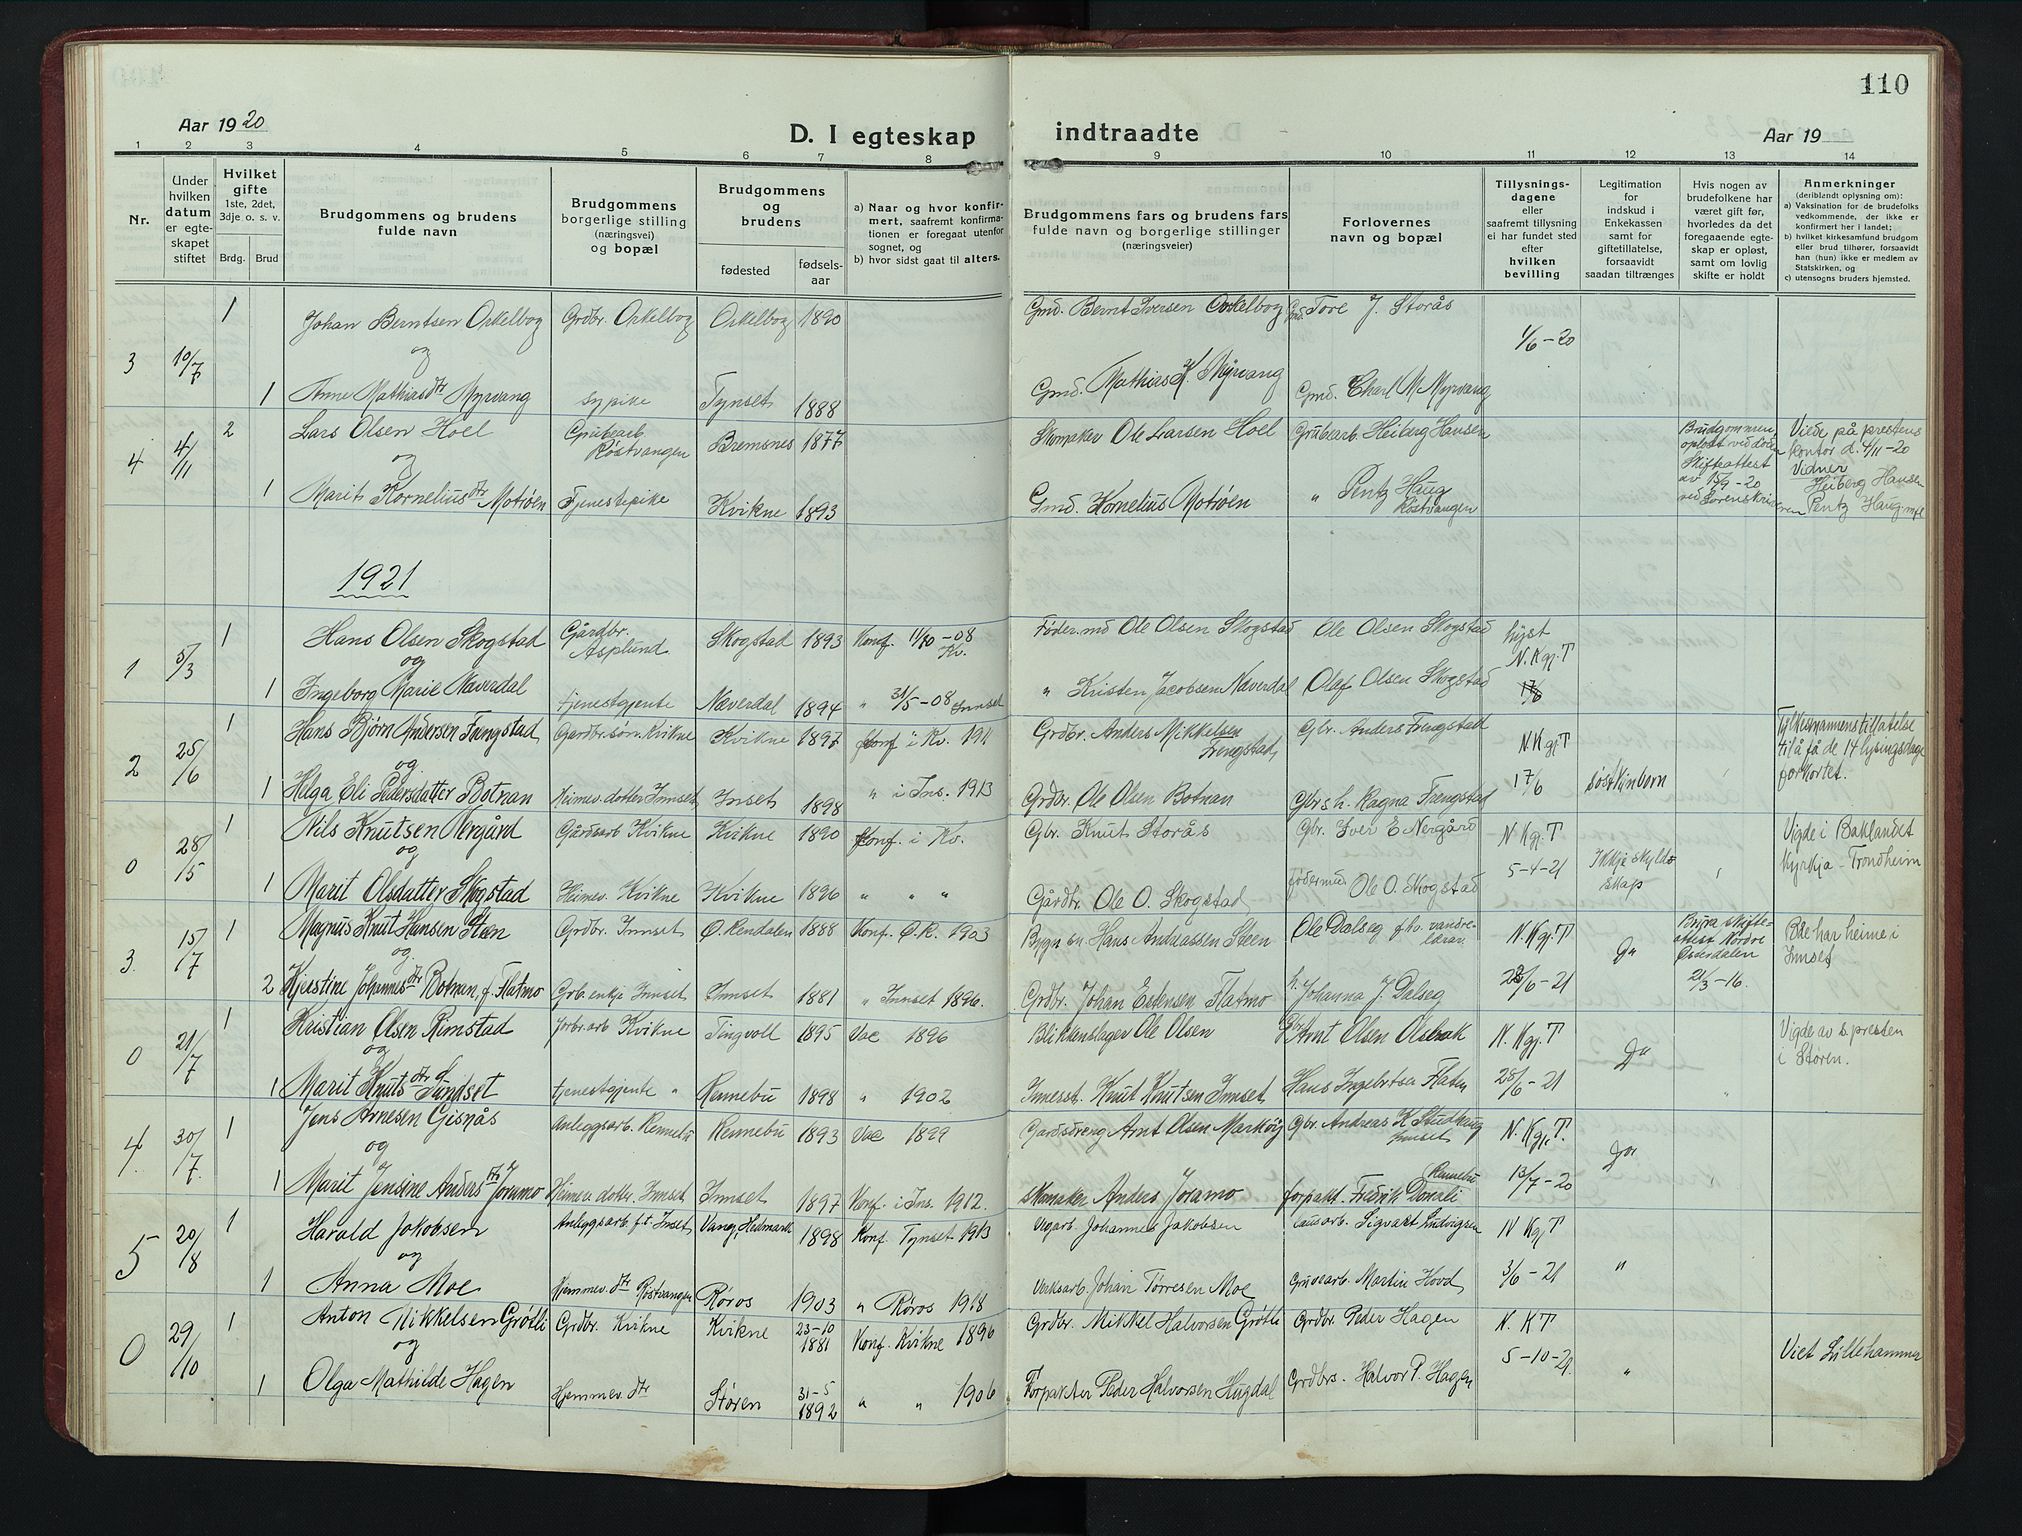 110
Aar 1920
D. I egteskap indtraadte
Aar 19
1 2 3 4 5 6 7 8 9 10 11 12 13 14
Nr.
Under hvilken datum er egteskapet stiftet
Hvilket gifte 1ste, 2det, 3dje o. s. v.
Brdg. Brud
Brudgommens og brudens fulde navn
Brudgommens borgerlige stilling (næringsvei) og bopæl
Brudgommens og brudens
fødested fødselsaar
a) Naar og hvor konfirmert, saafremt konfirmationen er foregaat utenfor sognet, og
b) hvor sidst gaat til alters.
Brudgommens fars og brudens fars fulde navn og borgerlige stillinger (næringsveier)
Forlovernes navn og bopæl
Tillysningsdagene eller saafremt tillysning ei har fundet sted efter hvilken bevilling
Legitimation for indskud i Enkekassen samt for giftetillatelse, forsaavidt saadan tiltrænges
Hvis nogen av brudefolkene har været gift før, hvorledes da det foregaaende egteskap er opløst, samt om lovlig skifte er holdt
Anmerkninger (deriblandt oplysning om):
a) Vaksination for de brudefolks vedkommende, der ikke er konfirmert her i landet;
b) hvilket kirkesamfund brudgom eller brud tilhører, forsaavidt han (hun) ikke er medlem av Statskirken, og
c) utensogns bruders hjemsted.
1 Johan Berntsen Orkelbog Grdbr. Orkelbog Orkelbog 1890 Gmd. Bernt Iversen Orkelbog Gmd. Tore J. Storås
3 10/7 og 1/6-20
1 Anne Mathiasdtr Myrvang sypike Tynset 1888 Gmd. Mathias K. Myrvang Gmd. Charl M. Myrvang
2 Lars Olsen Hoel Grubearb. Røstvangen Bremsnes 1877 Skomaker Ole Larsen Hoel Grubearb. Heiberg Hansen
4 4/11 og
Brudgommen opløst ved død Skifteattest av 15/9-20 ved Sorenskriveren
Viede på prestens kontor d. 4/11-20 Vidner Heiberg Hansen Pentz Haug
1 Marit Korneliusdtr Motrøen Tjenestepike Kvikne 1893 Gmd. Kornelius Motrøen " Pentz Haug Røstvangen
1921
1 Hans Olsen Skogstad Gårdbr. Asplund Skogstad 1893 Konf. 11/10-08 Kv. Føder.md Ole Olsen Skogstad Ole Olsen Skogstad lyst N. Kgj. T
1 5/3 og
1 Ingeborg Marie Næverdal tjenestgjente Næverdal 1894 " 31/5-08 Innset " Kristen Jacobsen Næverdal Olaf Olsen Skogstad 17/6
1 Hans Bjørn Andersen Frengstad Gardbr.søn. Kvikne Kvikne 1897 Konf i Kv. 1911 Grdbr. Anders Mikkelsen Frengstad Gbr. Anders Frengstad N Kgj T
2 25/6 og
Fylkesmannens tillatelse til å få de 14 lysingsdage forkortet.
1 Helga Eli Pedersdatter Botnan Heimev. dotter Innset Inset 1898 " i Ins. 1913 Grdbr. Ole Olsen Botnan Gbrs h. Ragna Frengstad 17/6 søskjnbern
1 Nils Knutsen Nergård Gårdsarb Kvikne Kvikne 1890 Konf. i Kv. Gbr. Knut Storås Gbr. Iver E Nergård N Kgj. T
0 28/5 og
Vigde i Baklandet Kyrkja - Trondheim
1 Marit Olsdatter Skogstad Heimev. Kvikne Kvikne 1896 " " " Gårdbr. Ole O. Skogstad födermd Ole O. Skogstad 5-4-21 Ikkje skyldskap
1 Magnus Knut Hansen Steen Grdbr. Innset Ø. Rendalen 1888 Konf. Ø.R. 1903 Bygn.sn. Hans Andreassen Steen Ole Dalseg f.hv. vandrelærar. N. Kgj. T
3. 15/7 og Do
Brura skifteattest Nordre Østerdalen 21/3-16.
Bde har heime i Innset
2 Kjerstine Johannesdtr Botnan, f. Flatmo Grb. enkje Innset Innset 1881 " Innset 1896. Grdbr. Johan Estensen Flatmo h. Johanna J. Dalseg 28/6-21
1 Kristian Olsen Rimstad Jorbr.arb Kvikne Tingvoll 1895 Vac 1896 Blikkenslager Ole Olsen Gbr. Arnt Olsen Olsbak N. Kgj. T
0 21/7 og Do
Vigde av s. presten i Støren.
1 Marit Knutsdtr Sundset tjenestgjente " Rennebu 1898 " 1902 Innesst. Knut Knutsen Innset Hans Ingebrtsen Flaten 28/6-21
1 Jens Arnesen Gisnås Anleggsarb. Rennebu Rennebu 1893 Vac 1899 Gardsdreng Arnt Olsen Markøig Gbr Andreas K Stuedkaug Innset N. Kgj. T.
4. 30/7 og Do
1 Marit Jensine Andersdtr Joramo Heimev dottr. Innset Innset 1897 Konf. i Ins. 1912. skomaker Anders Joramo forpakt. Fredrik Donali Rennebu 13/7-20
1 Harald Jakobsen Anleggsarb f.t. Inset Vang, Hedmark 1898 Konf Tynset 1913 Vegarb. Johannes Jakobsen Lausarb. Sigvart Ludvigsen N Kgj T
5 20/8 og "
1 Anna Moe Hjemmev. dtr Røstvangen Røros 1903 " Røros 1918 Verksarb. Johan Tørresen Moe Gruvearb. Martin Hovd 3/6-21
1 Anton Mikkelsen Grøtli Grdbr. Kvikne Kvikne 23-10 1881 Konf. Kvikne 1896 Grdbr. Mikkel Halvorsen Grøtli Grdbr Peder Hagen N. K T
0 29/10 og Viet Lillehammer
1 Olga Mathilde Hagen Hjemmev. dtr Støren 31-5 1892 " " 1906 Forpakter Peder Halvorsen Hugdal Grdbrs. Halvor P. Hagen 5-10-21. "